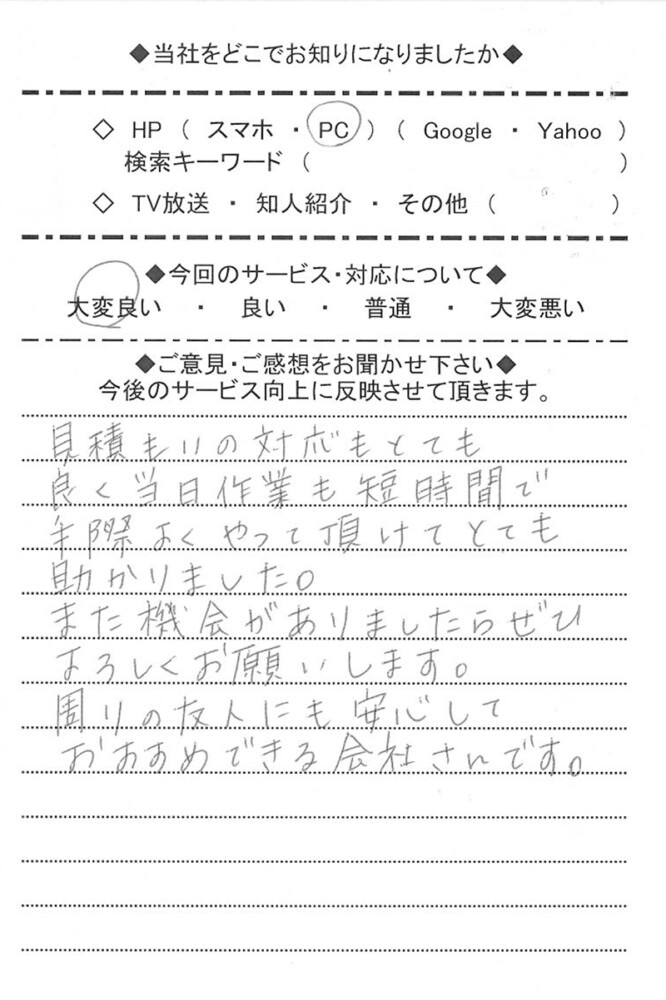 ◆当社をどこでお知りになりましたか◆
◇ HP ( スマホ ・ PC ) ( Google ・ Yahoo )
検索キーワード ( )
◇ TV放送 ・ 知人紹介 ・ その他 ( )
◆今回のサービス・対応について◆
大変良い ・ 良い ・ 普通 ・ 大変悪い
◆ご意見・ご感想をお聞かせ下さい◆
今後のサービス向上に反映させて頂きます。
見積もりの対応もとても
良く当日作業も短時間で
手際よくやって頂けてとても
助かりました。
また機会がありましたらぜひ
よろしくお願いします。
周りの友人にも安心して
おすすめできる会社さんです。